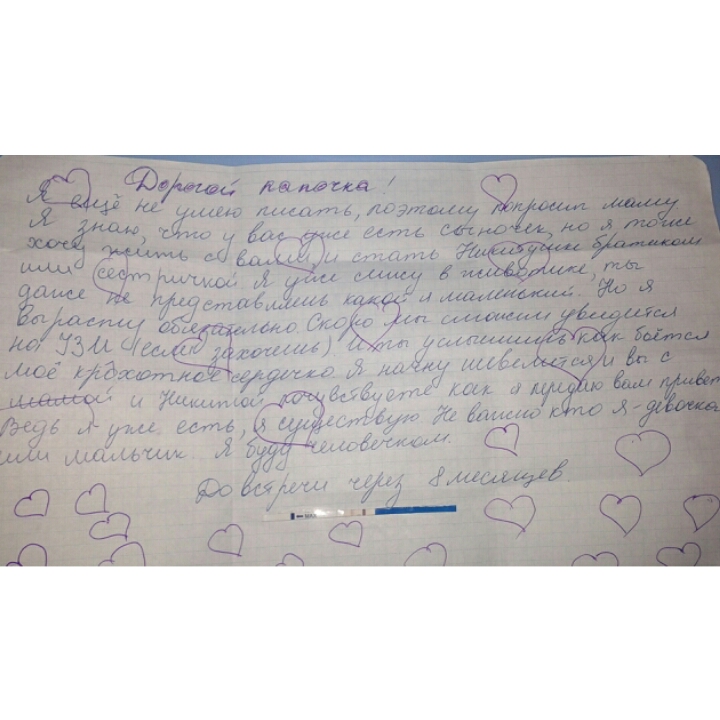 Дорогой папочка!
Я ещё не умею писать, поэтому попросил маму
Я знаю, что у вас уже есть сыночек, но я тоже
хочу жить с вами и стать Никитушке братиком
или сестричкой Я уже сижу в животике, ты
даже не представляешь какой я маленький. Но я
вырасту обязательно. Скоро мы сможем увидется
на УЗИ (если захочешь) И ты услышишь как бьётся
моё крохотное сердечко Я начну шевелится и вы с
мамой и Никитой почувствуете как я передаю вам привет
Ведь я уже есть, я существую Не важно кто я - девочка
или мальчик. Я буду человечком.
До встречи через 8 месяцев.